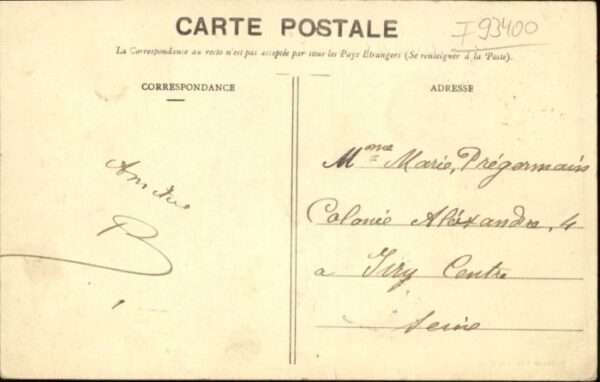 CARTE POSTALE
I 93400
La Correspondance au recto n'est pas acceptée par tous les Pays Etrangers (Se renseigner à la Poste).
CORRESPONDANCE
ADRESSE
Mme Marie, Prégermain
Colonie Aléxandre, 4
a Ivry Centre
Seine